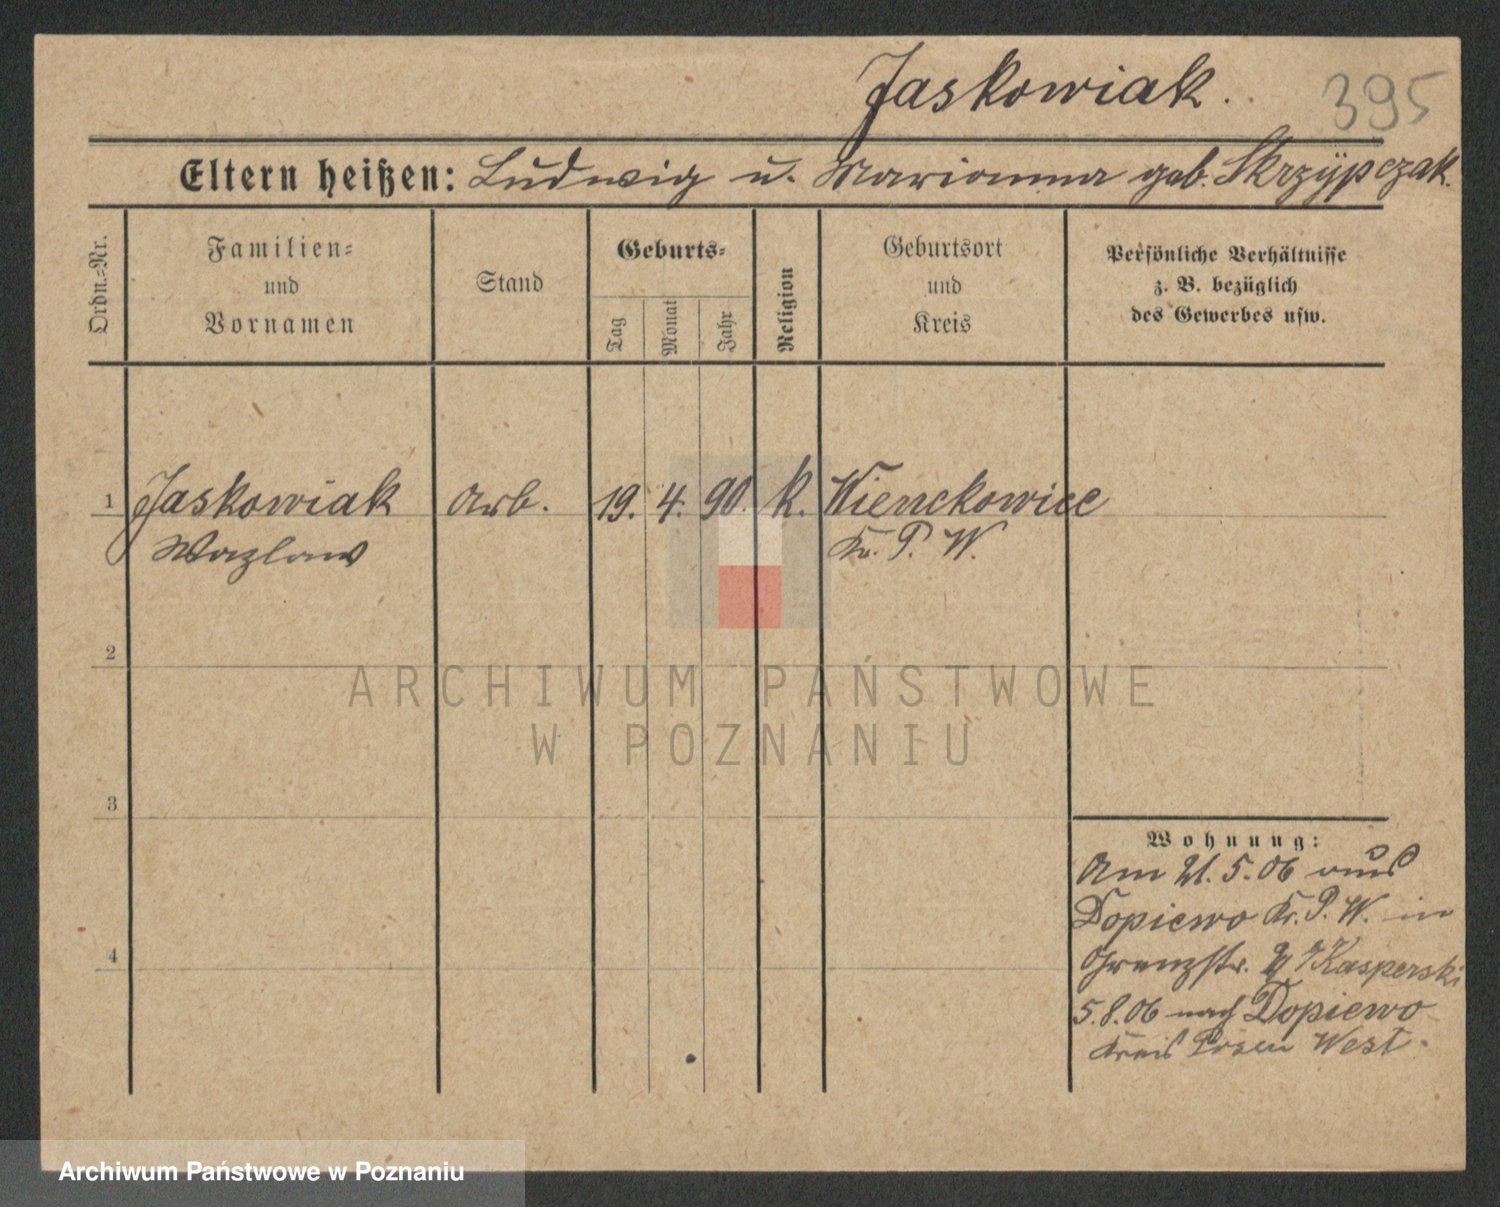 Jaskowiak.
395
Eltern heißen: Ludwig u. Marianna geb. Skrzypczak.
Ordn.-Nr.
Familien-
und
Vornamen
Stand
Geburts-
Tag
Monat
Jahr
Religion
Geburtsort
und
Kreis
Persönliche Verhältnisse
z. B. bezüglich
des Gewerbes usw.
1 Jaskowiak Arb. 19. 4. 90. k. Wienckowice
Wazlaw Kr. P. W.
2
3
4
Wohnung:
Am 21. 5. 06 aus
Dopiewo Kr. P. W. in
Grenzstr. Kasperski
5.8.06 nach Dopiewo
Kreis Posen West.
ARCHIWUM PAŃSTWOWE
W POZNANIU
Archiwum Państwowe w Poznaniu